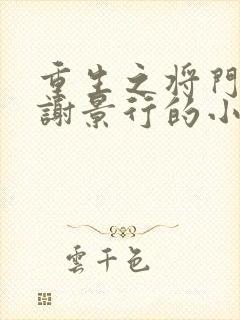 重生之将門
謝景行的小
雲千色